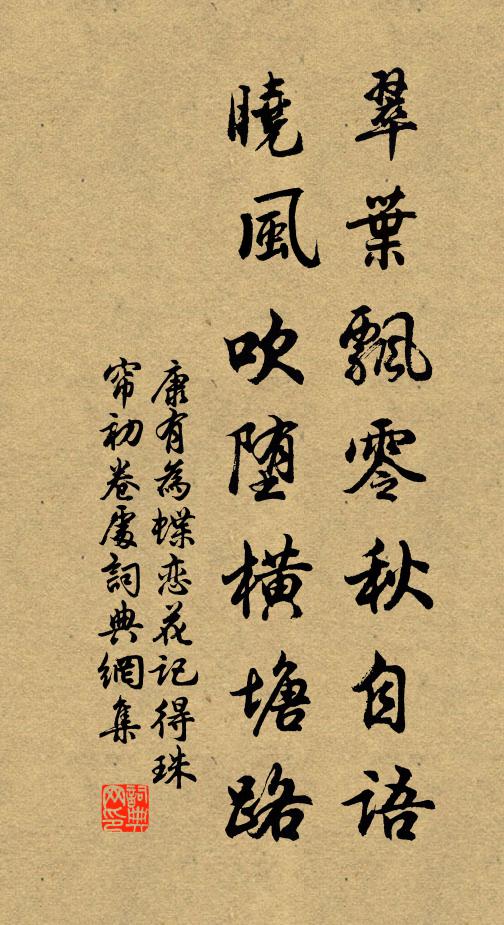 翠葉飄零秋自語
曉風吹墮橫塘路
康有為蝶恋花記得珠
帘初卷處詞典網集
詞典
网印